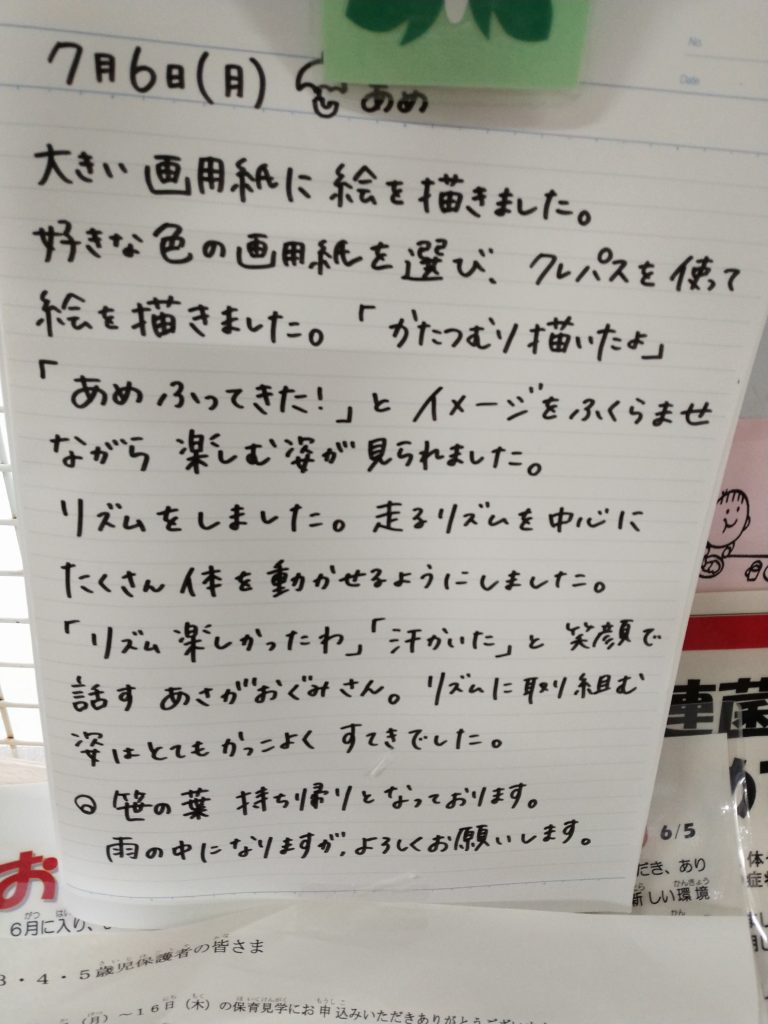 No.
Date
7月6日(月) あめ
大きい画用紙に絵を描きました。
好きな色の画用紙を選び、クレパスを使って
絵を描きました。「かたつむり描いたよ」
「あめふってきた!」とイメージをふくらませ
ながら楽しむ姿が見られました。
リズムをしました。走るリズムを中心に
たくさん体を動かせるようにしました。
「リズム楽しかったわ」「汗かいた」と笑顔で
話すあさがおぐみさん。リズムに取り組む
姿はとてもかっこよくすてきでした。
◎笹の葉 持ち帰りとなっております。
雨の中になりますが、よろしくお願いします。
連菌
6/5
だき、あり
新しい環境
お
6月に入り、
3・4・5歳児保護者の皆さま
(月)~16日(木)の保育見学にお申込みいただきありがとうござい